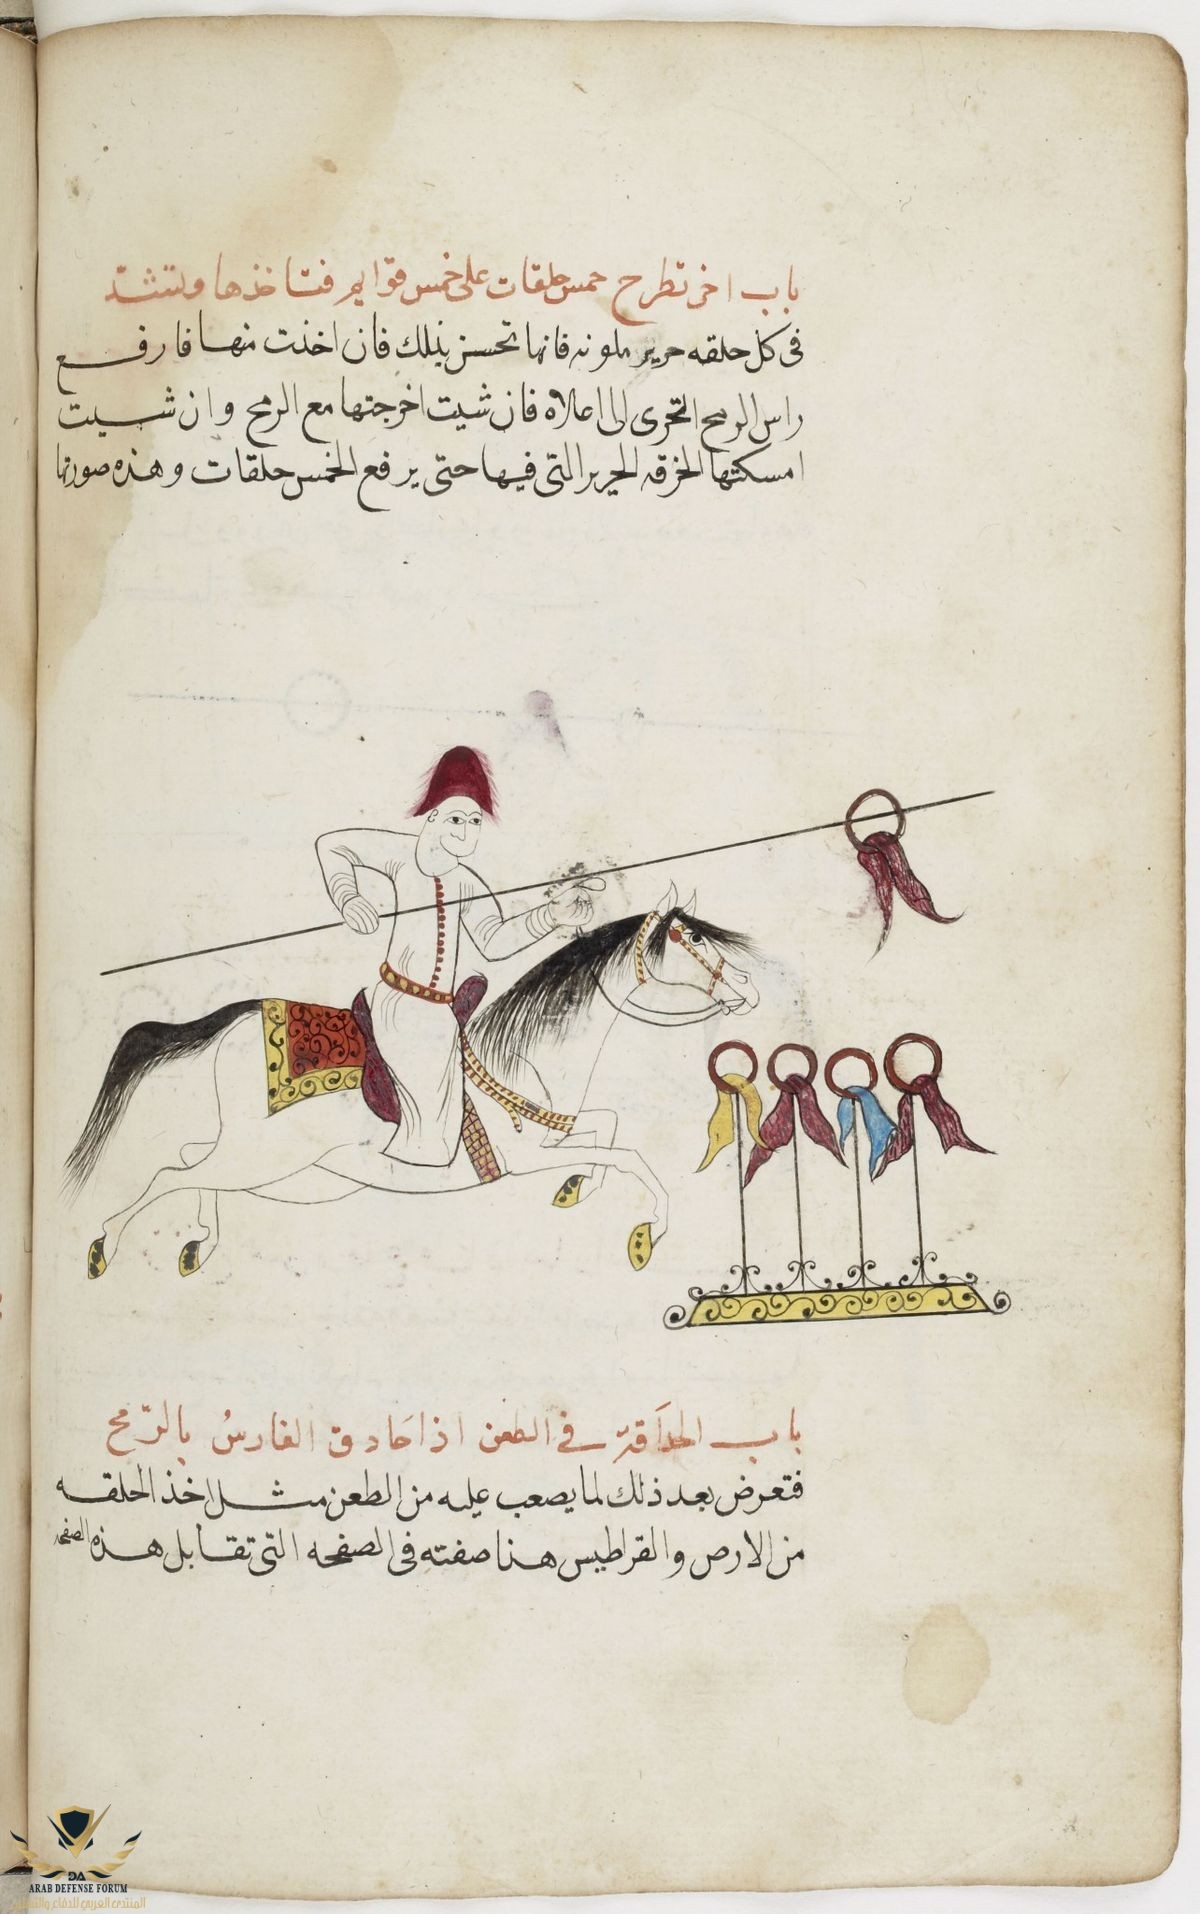 باب اخر تطرح خمس حلقات على خمس قوايم فتاخذها وتشدّ
فى كل حلقه حرير ملونه فانها تحسن بذلك فان اخذت منها فارفع
راس الرمح التحرى الى اعلاه فان شيت اخرجتها مع الرمح وان شيت
امسكتها الخرقه الحرير التى فيها حتى يرفع الخمس حلقات وهذه صورتها
باب الحداقة فى الطعن اذا حادق الفارسُ بالرّمح
فتعرض بعد ذلك لما يصعب عليه من الطعن مثل اخذ الحلقه
من الارض والقراطيس هنا صفته فى الصفحه التى تقابل هذه الصفحه
DA
ARAB DEFENSE FORUM
المنتدى العربي للدفاع والتسليح